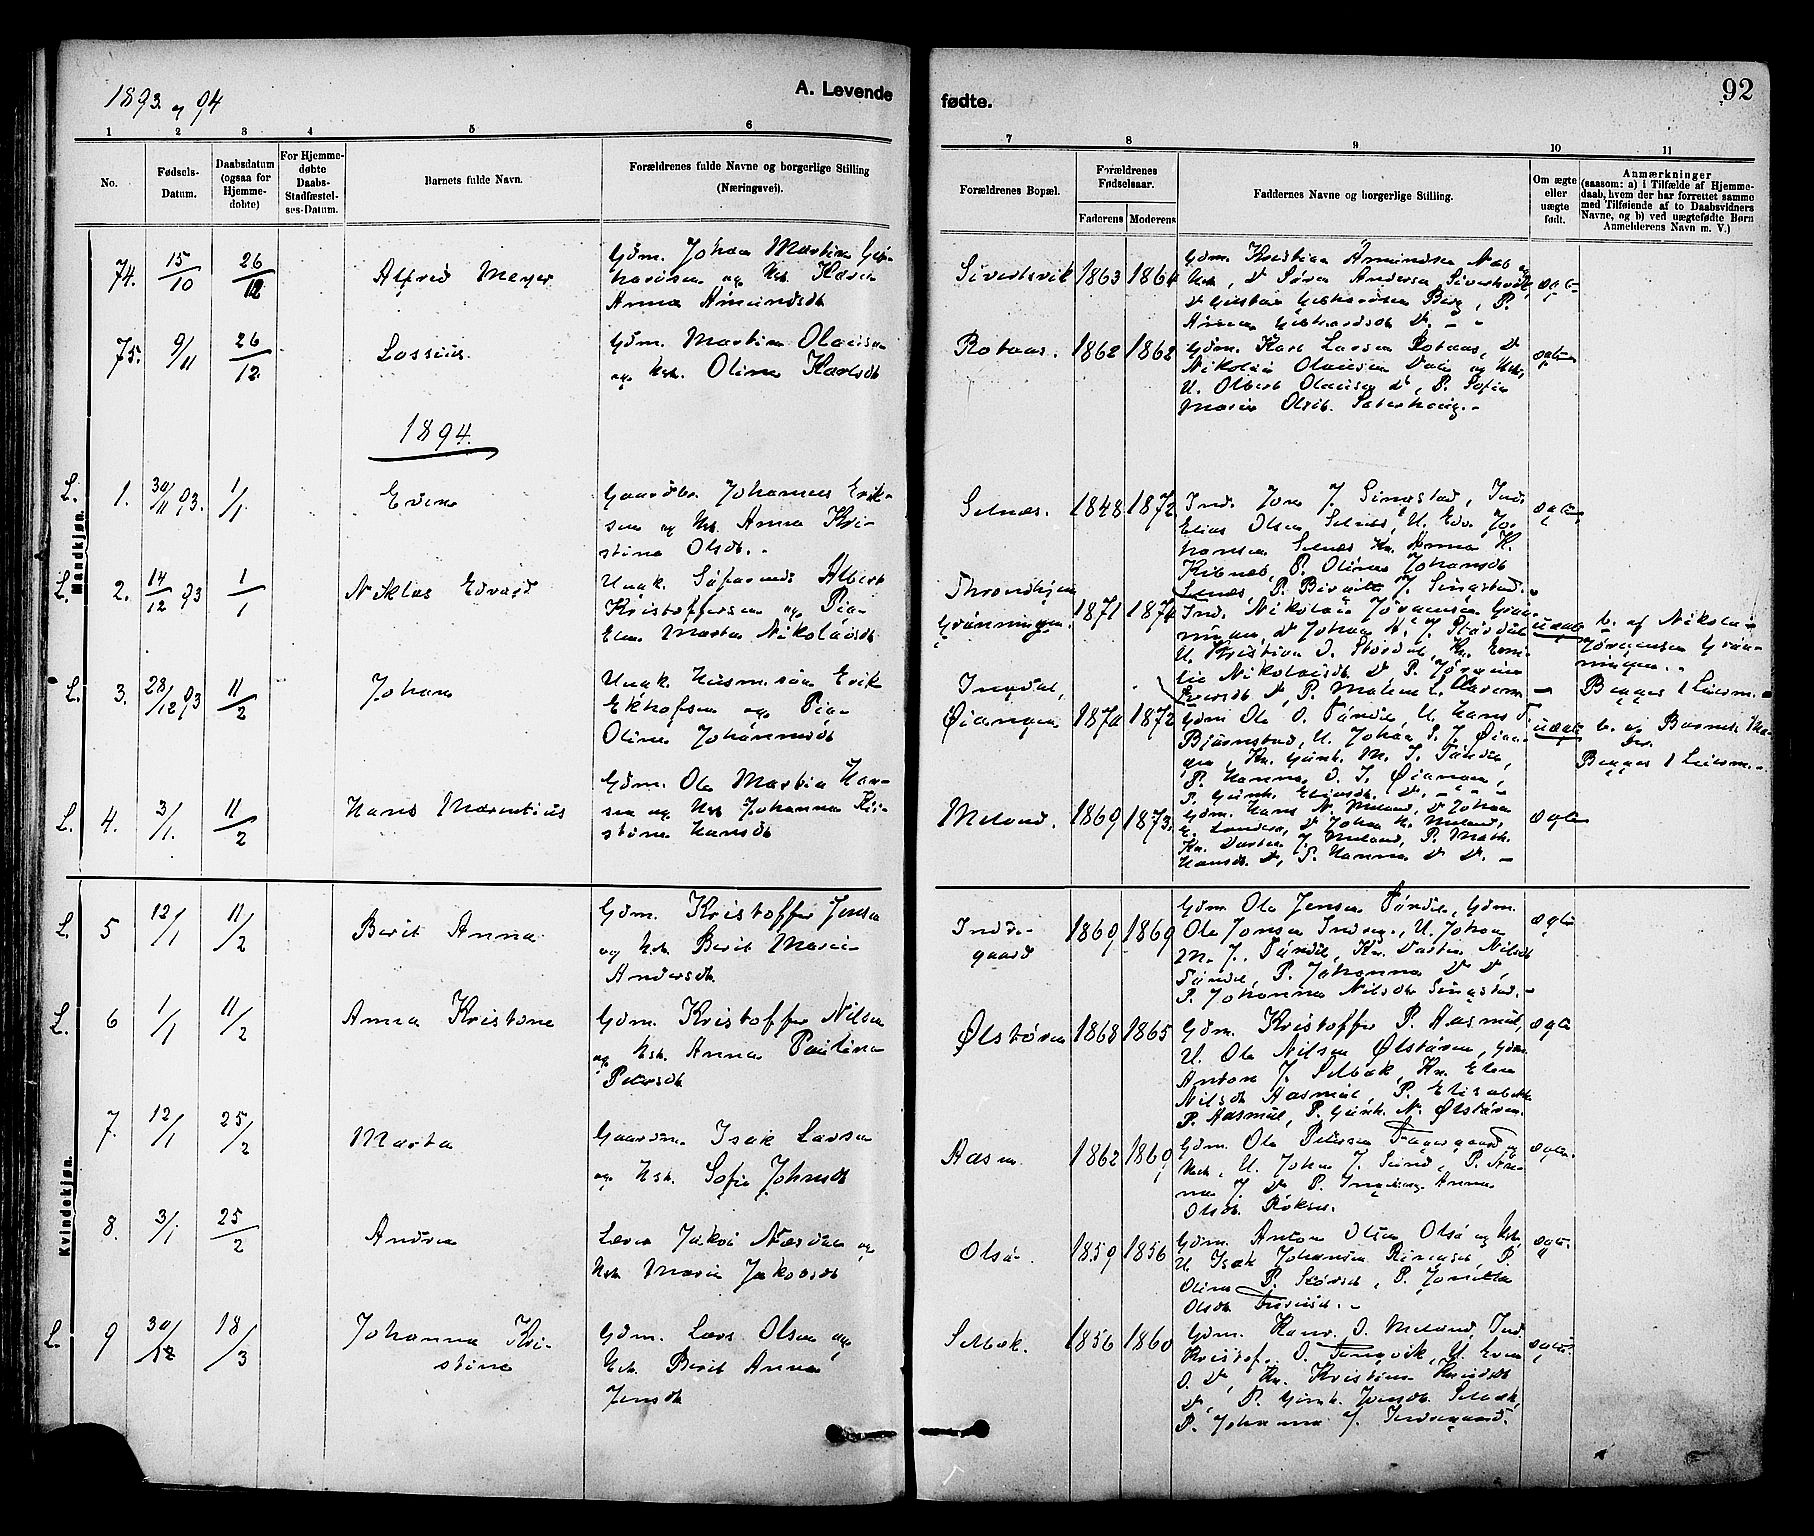 1893 og 94
A. Levende
fødte.
92
1 2 3 4 5 6 7 8 9 10 11
No.
Fødsels-
Datum.
Daabsdatum
(ogsaa for
Hjemme-
døbte)
For Hjemme-
døbte
Daabs-
Stadfæstel-
ses-Datum.
Barnets fulde Navn.
Forældrenes fulde Navne og borgerlige Stilling
(Næringsvei).
Forældrenes Bopæl.
Forældrenes
Fødselsaar.
Faderens Moderens
Faddernes Navne og borgerlige Stilling.
Om ægte
eller
uægte
født.
Anmærkninger
(saasom: a) i Tilfælde af Hjemme-
daab, hvem der har forrettet samme
med Tilføiende af to Daabsvidners
Navne, og b) ved uægtefødte Børn
Anmelderens Navn m. V.)
Mandkjøn.
74. 15/10 26/12 Alfred Meyer
Gdm. Johan Martin
og Hst. Karen
Anna Amundsdt
Sivertsvik 1863 1864
Gdm. Kristian Amundsen Næs og
Hst, D Søren Andersen Sivertsvik,
Berg, P.
ægte
75. 9/11 26/12 Lossius
Gdm. Martin Olausen
og Hst. Oline Karlsdt
Rotaas. 1862 1862
Gdm. Karl Larsen Rotaas, D
Nikolai Olausen Dale og Hst,
U. Olbert Olausen D, P. Sofie
Marie Olsdt.
ægte
1894.
L. 1. 30/11 93. 1/1 Edvin
Gaardbr. Johannes Erik-
sen og Hst. Anna Kri-
stine Olsdt.
Selnæs. 1848 1872
Ind. Jon J. Singstad, Ind.
Elias Olsen Selnæs, U. Edv. Jo-
hansen Selnæs Kn. Anna K.
P. Oline Johansdt
Selnæs, P. Birgitte J. Singstad.
ægte
L. 2. 14/12 93 1/1 Niklas Edvard
Ungk. Søfarende Albert
Kristoffersen og Pige
Elen Marta Nikolaisdt
Throndhjem
Grønningen. 1871 1874
Ind. Nikolai Jørgensen Grøn-
ningen, D Johan
U. Kristian J. Kn. Emi-
lie Nikolaisdt D P. Jørgine
D, P. Malene L.
uægte b. af Nikolai
Jørgensen Grøn-
ningen.
Begges 1 Leierm.
L. 3. 28/12 93 11/2 Johan
Ungk. Husmsøn Erik
Ekhofsen og Pige
Oline Johannesdt
Inndal,
Øiangen 1870 1872
Gdm Ole O. Tøndel, U. Hans T.
Bjørnstad, U. Johan S. J. Øian-
gen, Kn. Gunh. M. J. Tøndel,
P. Hanna O. J. Øiangen,
P. Gunh. D.
uægte b. af Barnets
Begges 1 Leierm.
L. 4. 3/1. 11/2 Hans Marentius
Gdm. Ole Martin Han-
sen og Hst Johanna Kri-
stine Hansdt
Meland. 1869 1873.
Gdm. Hans N. Meland, D Johan
E. D Johan H. Meland,
Kn. J. Meland, P. Math.
Hansdt. D, P. Hanna D D.
ægte
Kvindekjøn.
L. 5 12/1 11/2 Berit Anna
Gdm. Kristoffer Jensen
og Hst. Berit Marie
Andersdt.
Indre-
gaard 1869 1869
Gdm. Ole Jensen Tøndel, Gdm.
Ole Jonsen U. Johan
M. J. Tøndel, Kn. Nilsdt
Tøndel, P. Johanna D D,
P. Johanna Nilsdt Singstad.
ægte
L. 6 1/1 11/2 Anna Kristine
Gdm. Kristoffer Nilsen
og Hst. Anna Pauline
Petersdt
Ølstøren 1868 1865
Gdm. Kristoffer P. Aasmul,
U. Ole Nilsen Ølstøren, Gdm
Anton J. Selbæk, Kn. Elen
Nilsdt Aasmul, P. Elisabeth
P. Aasmul, P. Gunh. N. Ølstøren.
ægte
7. 12/1 25/2 Marta
Gaardm. Isak Larsen
og Hst. Sofie Johnsdt
Aasen 1862 1860
Gdm. Ole Petersen Fagergaard og
Hst, U. Johan J. Sund, P. An-
na J. D P. Ingeborg Anna
Olsdt.
ægte
8. 3/1 25/2 Andrea
Lærer Jakob og
Hst. Marie Jakobsdt
Olsø 1859 1856
Gdm. Anton Olsen Olsø og Hst,
U. Isak Johansen P.
Oline P. P.
Olsdt
ægte
L. 9 30/12 18/3 Johanna Kri-
stine
Gdm. Lars Olsen og
Hst. Berit Anna
Jensdt
Selbæk. 1856 1860
Gdm. Hans O. Meland, Ind.
Kristof. O. Tangvik, U. Even
O. D, Kn. Kristine
D, P. Gunh. Jensdt Selbæk,
P. Johanna J. Indregaard.
ægte